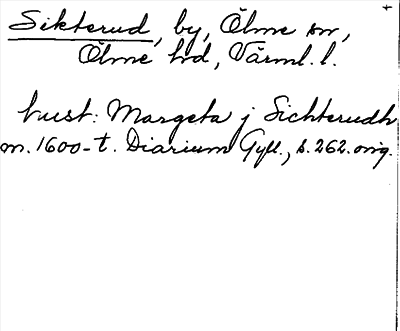 Sikterud, by, Ölme sn,
Ölme hd, Värml. l.
hust: Margeta j Sichterudh
m. 1600-t. Diarium Gyll., s. 262. orig.